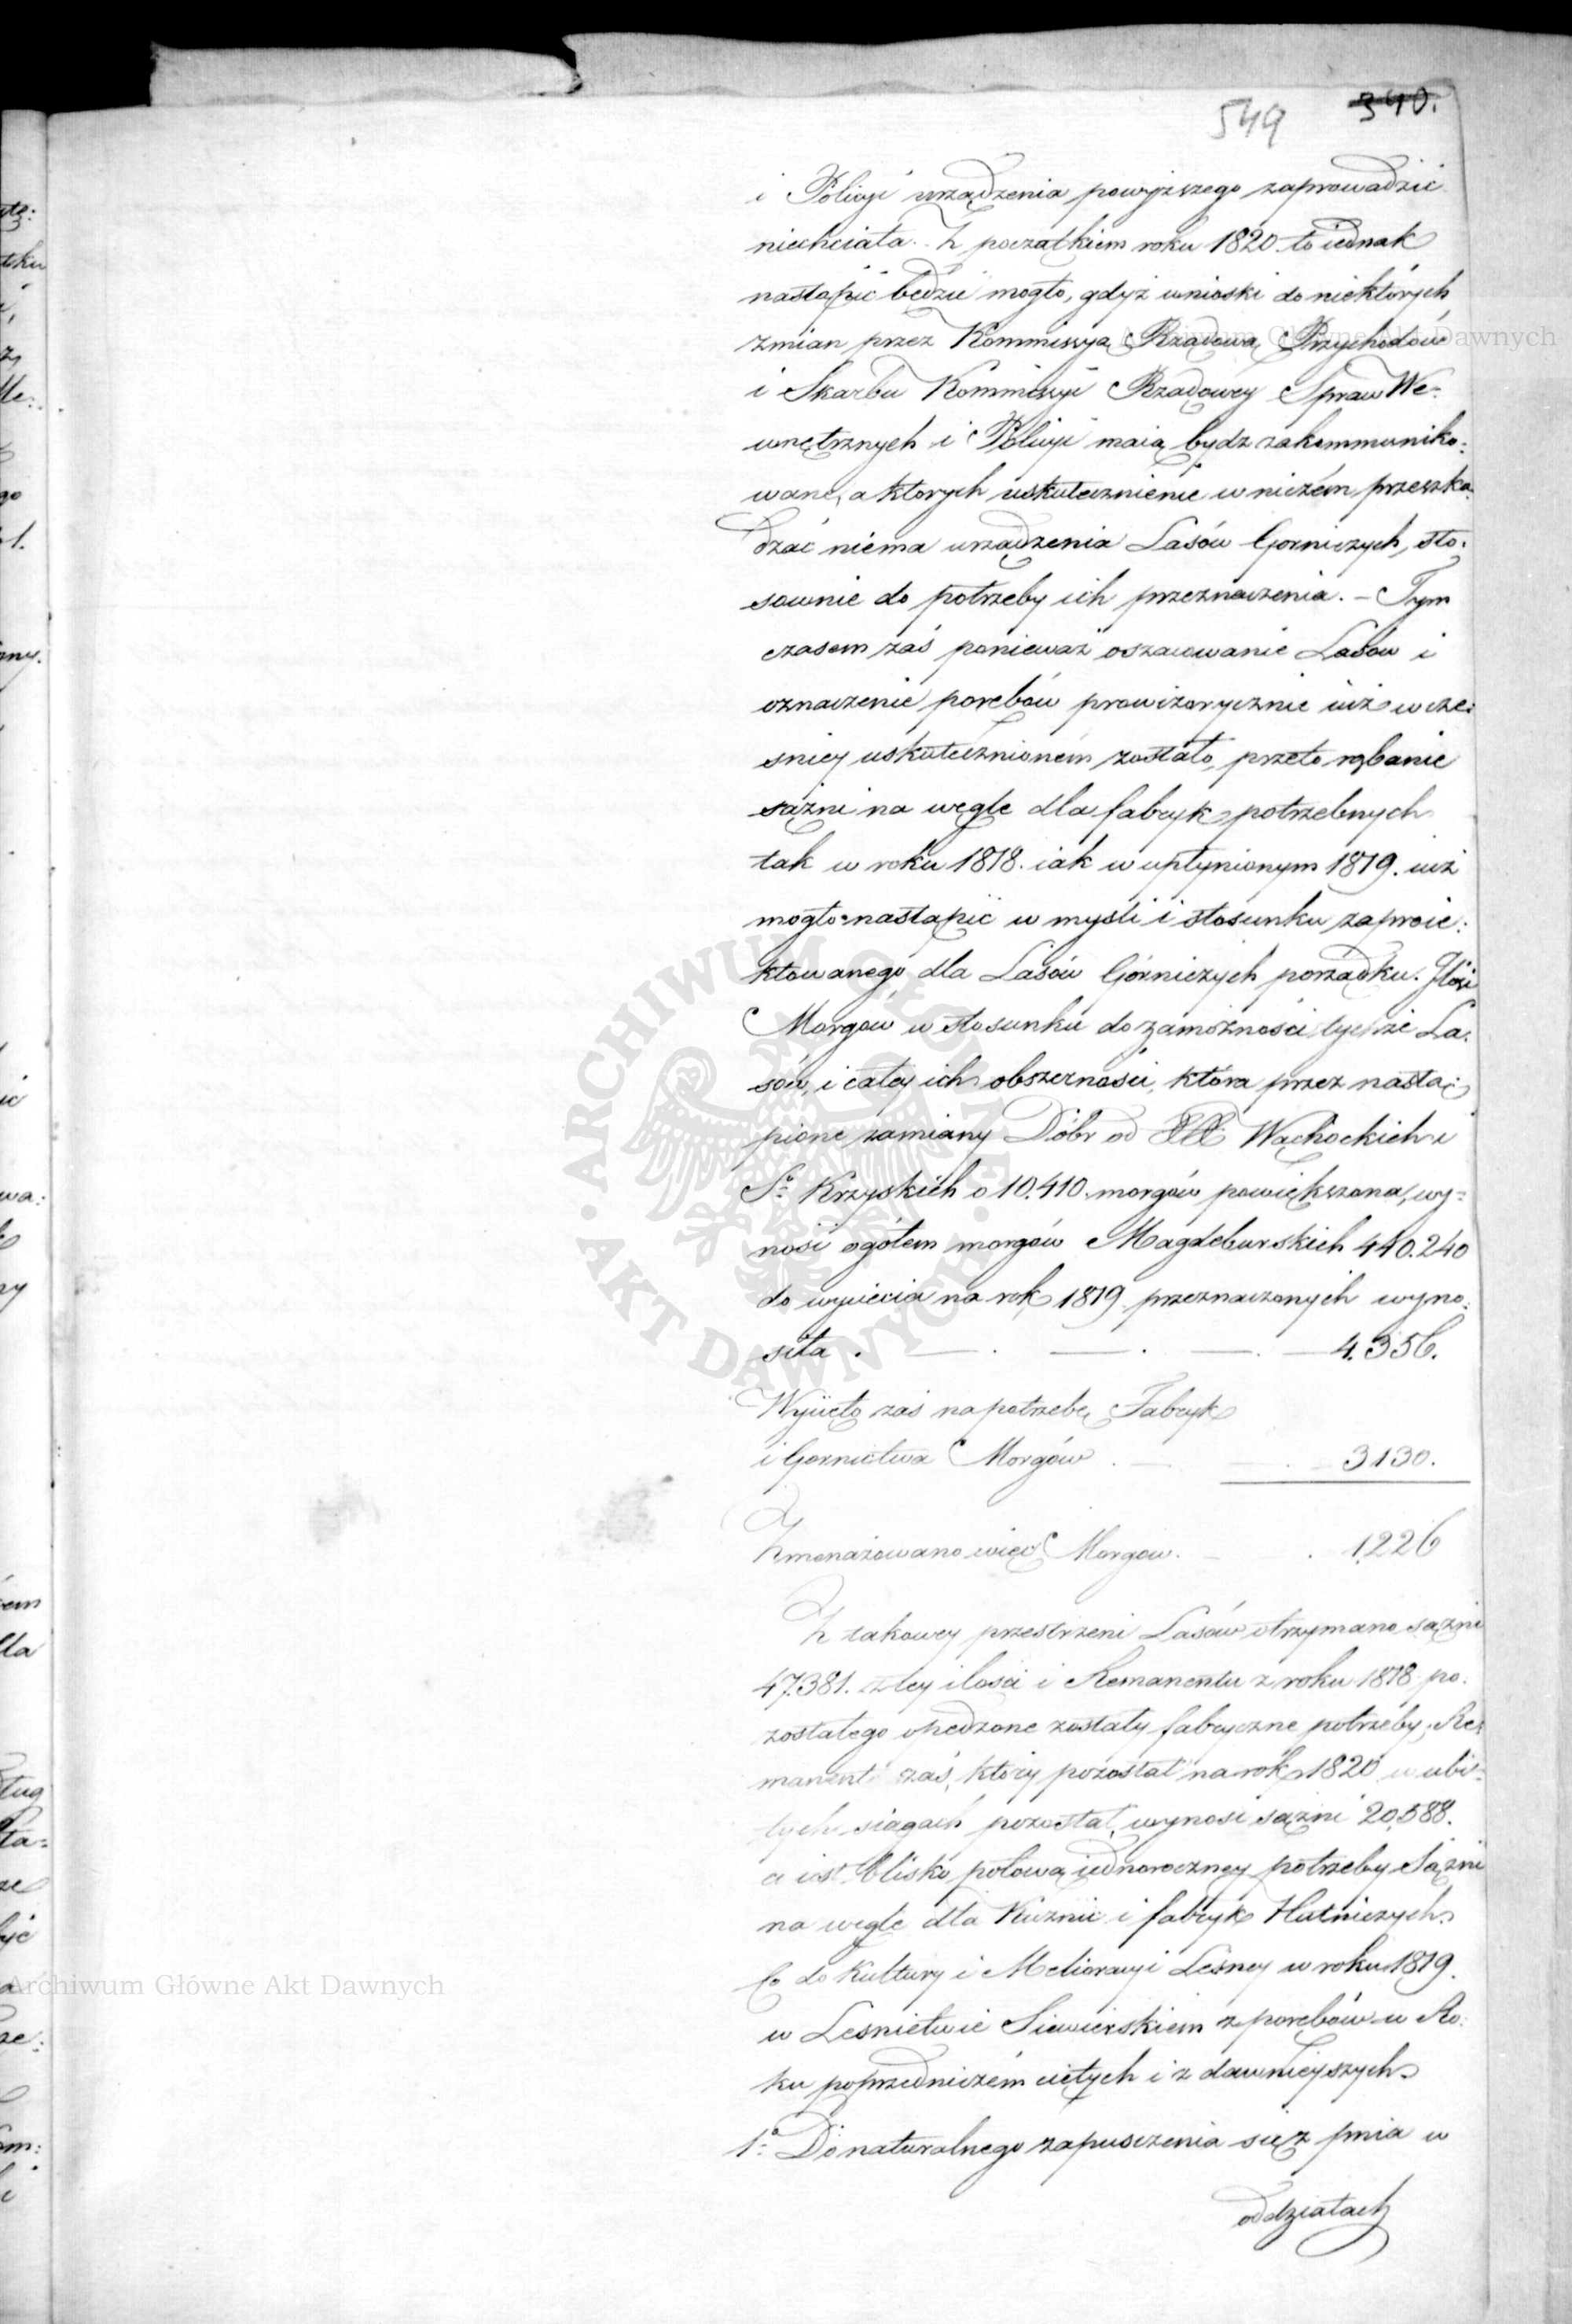 549 340.
i Policyi urządzenia powyższego zaprowadzić
niechciała. Z początkiem roku 1820 to iednak
nastąpić będzie mogło, gdyż wnioski do niektórych
zmian przez Kommissyą Rządową Przychodów
i Skarbu Kommissyi Rządowey Spraw We-
wnętrznych i Policyi maią bydz zakommuniko:
wane, a ktorych uskutecznienie w niczém przeszka
dzać niema urządzenia Lasów Gorniczych, sto:
sownie do potrzeby ich przeznaczenia. – Tym
czasem zaś ponieważ oszacowanie Lasów i
oznaczenie porębów prowizorycznie iuż wcze:
sniey uskutecznioném zostało, przeto rąbanie
sążni na węgle dla fabryk potrzebnych
tak w roku 1818. iak w upłynionym 1819. iuż
mogło nastąpić w myśli i stosunku zaproie:
ktowanego dla Lasów Górniczych porządku. Ilość
Morgów w stosunku do zamożności tychże La:
sów, i całey ich obszerności, która przez nastą:
pione zamiany Dóbr od XX Wąchockich i
S<sup>o</sup> Krzyskich o 10.410 morgów powiększona, wy-
nosi ogółem morgów Magdeburskich 440.240
do wycięcia na rok 1819 przeznaczonych wyno:
siła . — . — . — . — 4.356.
Wyięto zaś na potrzebę Fabryk
i Gornictwa Morgów . — . — 3130.
Zmenażowano więc Morgow. — . 1,226
Z takowey przestrzeni Lasów otrzymano sążni
47.381. z tey ilości i Remanentu z roku 1818 po:
zostałego opędzone zostały fabryczne potrzeby; Re:
manent zaś, który pozostał na rok 1820 w ubi-
tych siągach pozostał, wynosi sążni 20,588.
a iest blisko połową iednoroczney potrzeby Sążni
na węgle dla Kuznic i fabryk Hutniczych.
Co do Kultury i Melioracyi Leśney w roku 1819.
w Lesnictwie Siewierskiem z porębów w Ro:
ku poprzedniczém ciętych i z dawnieyszych.
1<sup>o</sup> Do naturalnego zapuszczenia się z pnia w
oddziałach
Archiwum Główne Akt Dawnych
Archiwum Główne Akt Dawnych
ARCHIWUM GŁÓWNE · AKT DAWNYCH ·